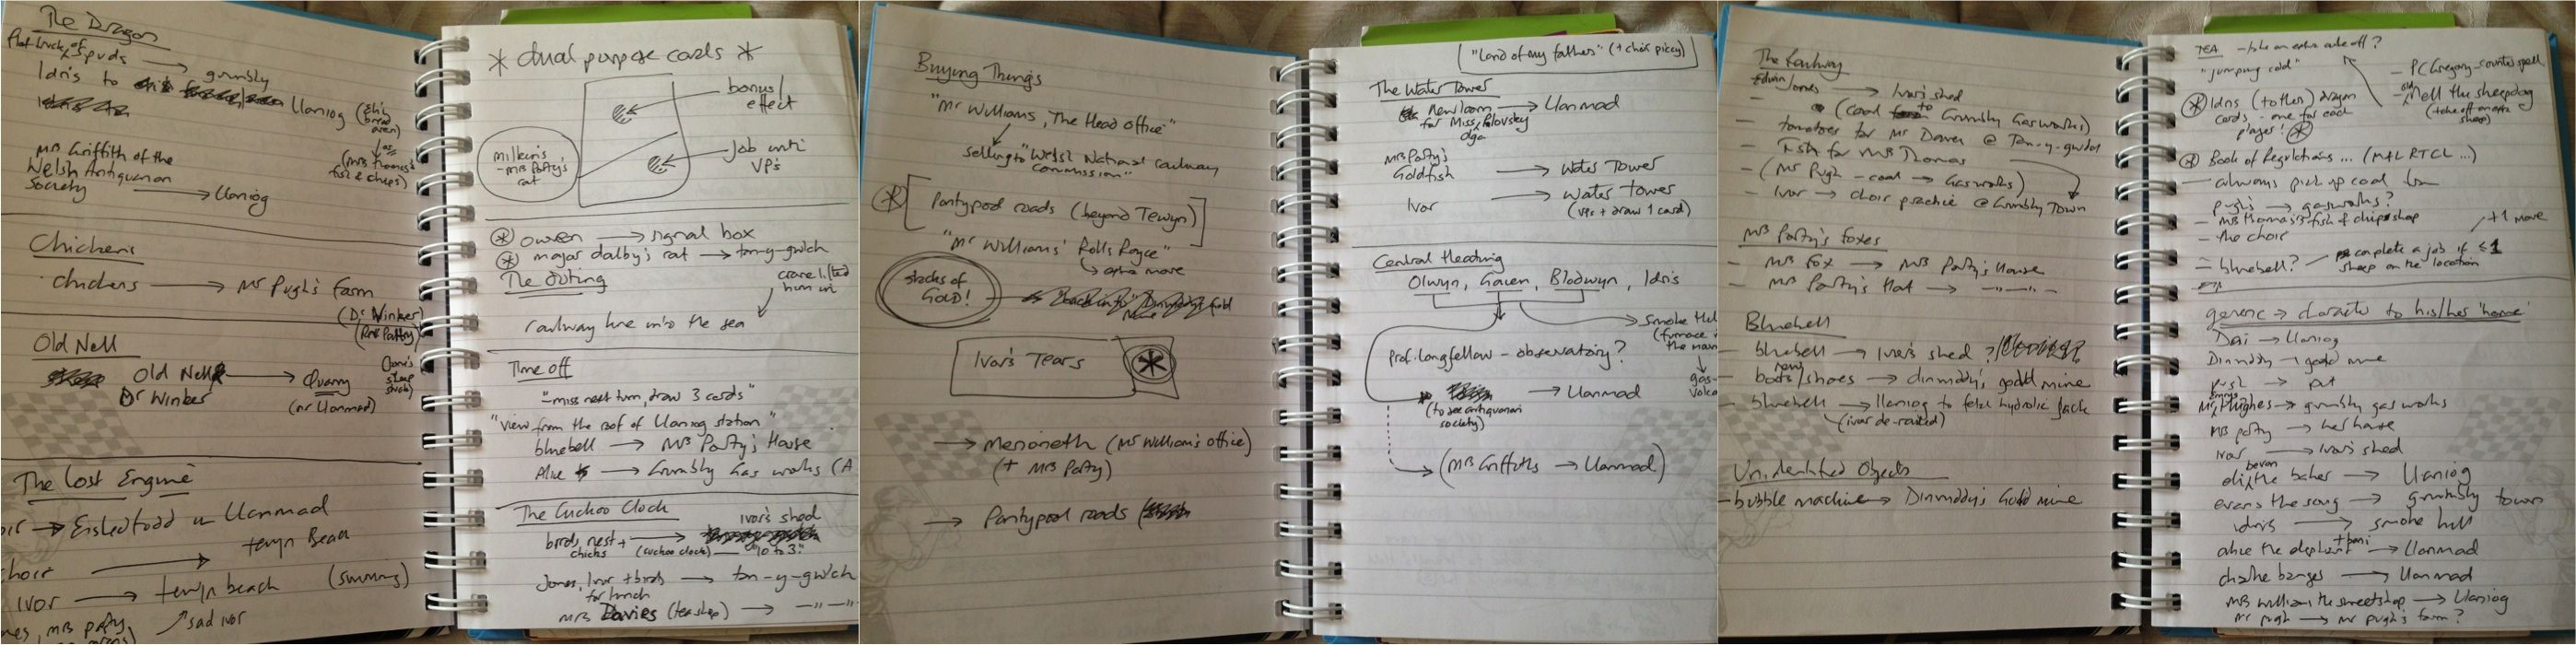 The Dragon
flat truck of spuds → grumbly
Idris to Llaniog
Mrs Griffith of the
Welsh Antiquarian
Society → Llaniog
(Mrs Thomas's
fish & chips)
Chickens
chickens → Mr Pugh's farm
(Dr Winker)
Old Nell
Old Nell → Quarry
Dr Winker (nr Llanmad)
The Lost Engine
→ Eisteddfod in Llanmad
choir → tewyn Beach
Ivor → tewyn beach (swimming)
sad ivor
* dual purpose cards *
bonus/
effect
Job with
VP's
Milkin's
- Mrs Porty's
rat
* owen → signal box
* major dalby's rat → tan-y-gwlch
The Outing
railway line into the sea
Time off
"miss next turn, draw 3 cards"
"view from the roof of Llaniog station"
bluebell → Mrs Porty's House
Alice → Grumbly Gas works (A
The Cuckoo Clock
birds nest + → ivor's shed
chicks (cuckoo clock) "10 to 3"
Jones, Ivor + birds → tan-y-gwlch
for lunch
Mrs Davies (tea shop) → -"-"-
Buying Things
"Mr Williams, The Head office"
selling to "Welsh National railway
commission"
* [Pontypool roads (beyond Tewyn)]
"Mr Williams' Rolls Royce"
extra move
stacks of
GOLD!
Ivor's Tears *
→ Merioneth (Mr William's office)
(+ Mrs Porty)
→ Pontypool roads
"Land of my fathers" (+ choir piccy)
The Water Tower
New loom → Llanmad
for Miss Olga Polovsky
Mrs Porty's
Goldfish → Water Tower
Ivor → Water tower
(VPs + draw 1 card)
Central Heating
Olwyn, Gaien, Blodwyn, Idris
→ Smoke Hill
(furnace in
prof. longfellow - observatory?
→ Llanmad
(to see antiquarian
society)
→ (Mrs Griffiths → Llanmad)
The Railway
Edwin Jones → Ivor's shed
- (coal to Grumbly Gasworks)
- tomatoes for Mr Davies @ Tan-y-gwlch
- Fish for Mrs Thomas
- (Mr Pugh - coal → Gasworks)
- Ivor → choir practice @ Grumbly Town
Mrs Porty's Foxes
- Mrs Fox → Mrs Porty's House
- Mrs Porty's Hat → -"-"-
Bluebell
- bluebell → Ivor's shed ?
- new boots/shoes → dinmiddy's gold mine
- bluebell → llaniog to fetch hydrolic jack
(ivor de-railed)
Unidentified Objects
- bubble machine → Dinmiddy's Gold mine
TEA - take an extra cake off?
"jumping cold"
- PC Gregory - counter spell
- old Nell the sheepdog
(take off an extra
sheep)
* Idris (+ other) dragon
cards - one for each
player! *
* Book of Regulations ... (M+LRTCL ...)
- always pick up coal from
pugh's → gasworks?
- Mrs thomas's fish & chip shop
- the choir +1 move
- bluebell? complete a job if ≤ 1
sheep on the location
generic → character to his/her 'home'
Dai → Llaniog
Dinmiddy → gold mine
pugh → pit
Mr Hughes → grumbly gas works
Mrs porty → her house
Ivor → Ivor's shed
eli bevan the baker → Llaniog
evans the song → grumbly town
idris → smoke hill
alice the elephant + bani → Llanmad
charlie banger → Llanmad
Mrs williams the sweetshop → Llaniog
mr pugh → mr pugh's farm?